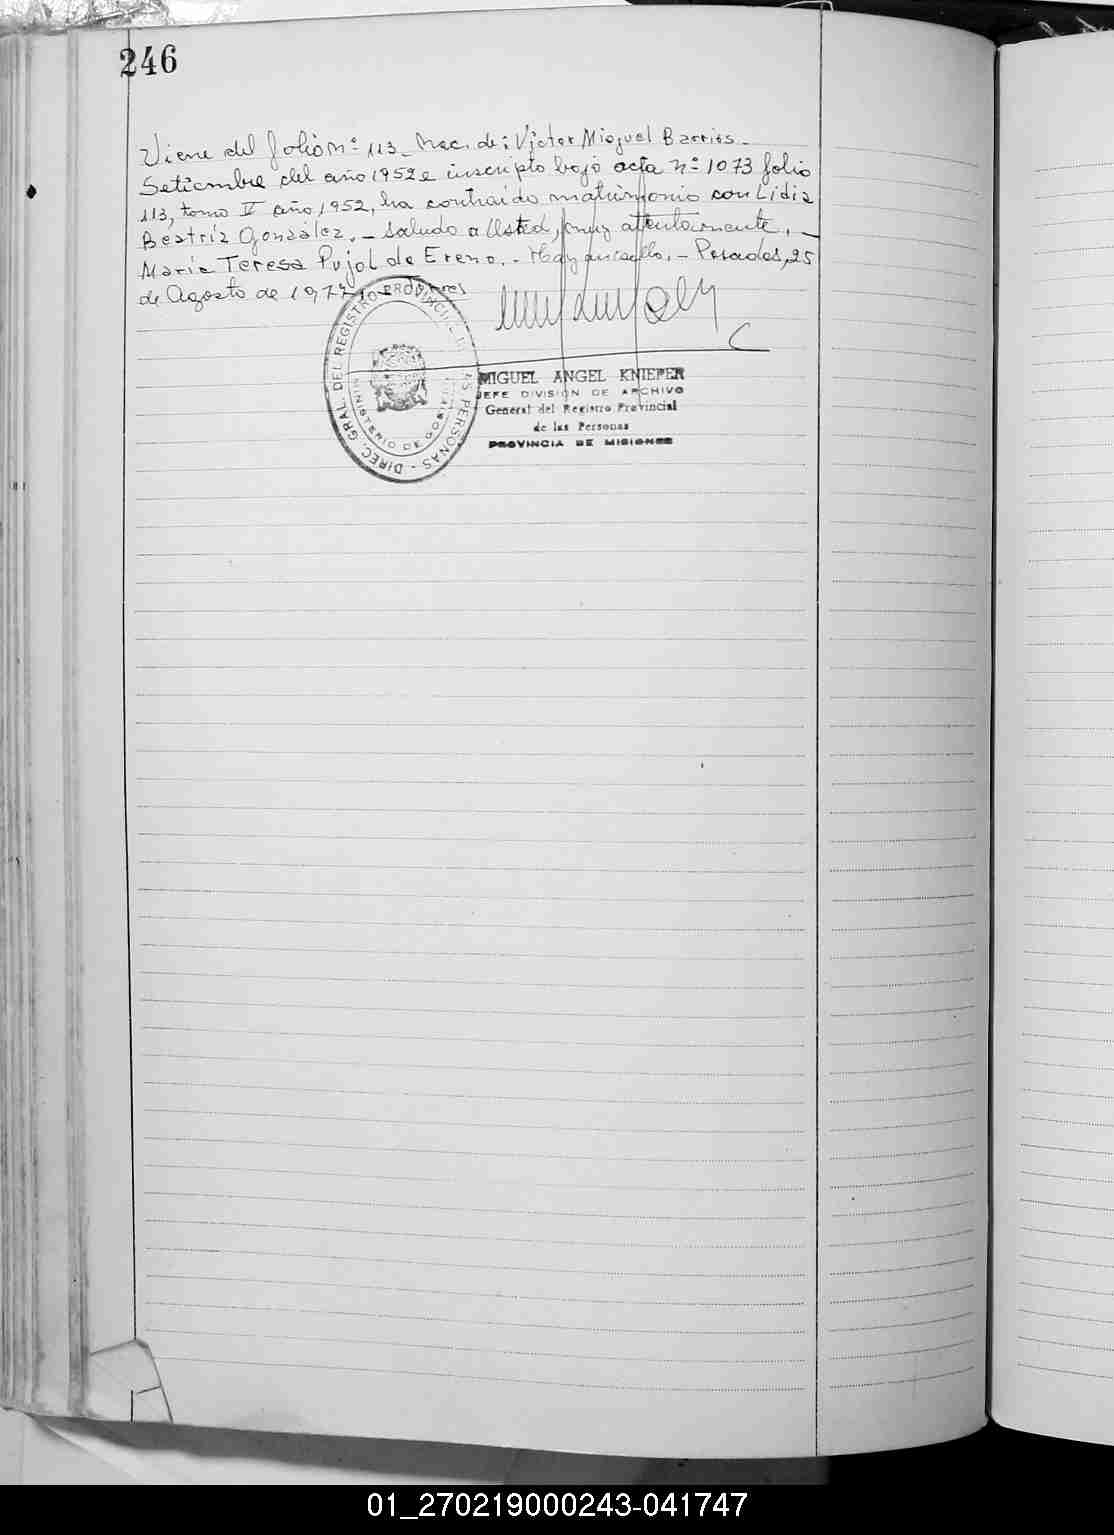 246
Viene del folio Nº 113 - Nac. de: Victor Miguel Barrios.-
Setiembre del año 1952 e inscripto bajo acta nº 1073 folio
113, tomo IV año 1952, ha contraido matrimonio con Lidia
Beatriz González. - Saludo a Usted, muy atentamente. -
María Teresa Pujol de Ereno. - Hay un sello. - Posadas, 25
de Agosto de 1977
DIREC. GRAL. DEL REGISTRO PROVINCIAL DE LAS PERSONAS -
MINISTERIO DE GOBIERNO
MIGUEL ANGEL KNIEPER
JEFE DIVISION DE ARCHIVO
General del Registro Provincial
de las Personas
PROVINCIA DE MISIONES
01_270219000243-041747